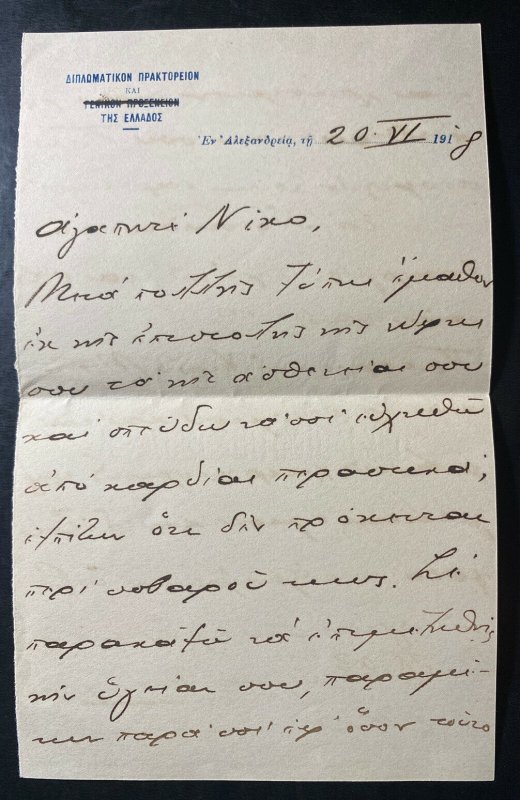 ΔΙΠΛΩΜΑΤΙΚΟΝ ΠΡΑΚΤΟΡΕΙΟΝ
ΚΑΙ
ΓΕΝΙΚΟΝ ΠΡΟΞΕΝΕΙΟΝ
ΤΗΣ ΕΛΛΑΔΟΣ
Ἐν Ἀλεξανδρείᾳ, τῇ 20 VI 1918
Ἀγαπητέ Νῖκο,
Μετά πολλῆς λύπης ἔμαθον
ἐκ τῆς ἐπιστολῆς τῆς
σου τά τῆς ἀσθενείας σου
καί σπεύδω νά σοί εὐχηθῶ
ἀπό καρδίας περαστικά,
ἐλπίζων ὅτι δέν πρόκειται
περί σοβαροῦ τινος. Σέ
παρακαλῶ νά ἐπιμεληθῇς
τήν ὑγείαν σου, παραμέ-
νων παρά σοί ἐφ' ὅσον τοῦτο